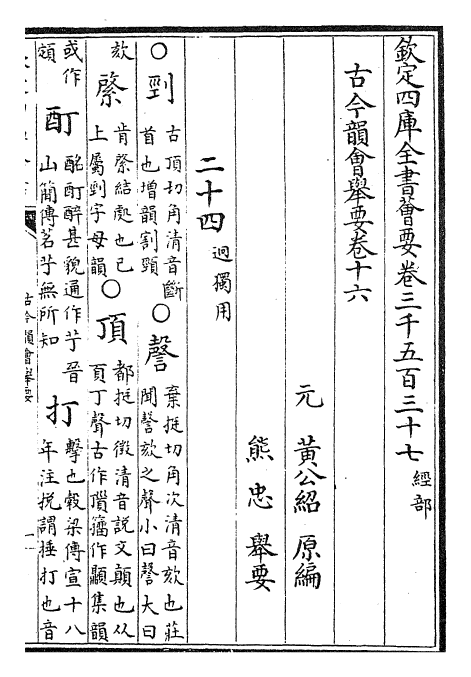 欽定四庫全書薈要卷三千五百三十七 經部
古今韻會舉要卷十六
元 黃公紹 原編
熊忠 舉要
二十四 迥獨用
○剄 古頂切角清音斷首也增韻割頸 ○謦 棄挺切角次清音欬也莊聞謦欬之聲小曰謦大曰
欬 綮 肯綮結處也已上屬剄字母韻 ○頂 都挺切徵清音說文顛也从頁丁聲古作 籀作 集韻
或作 酊 酩酊醉甚貌通作艼晉山簡傳茗艼無所知 打 擊也穀梁傳宣十八年注捝謂捶打也音
古今韻會舉要